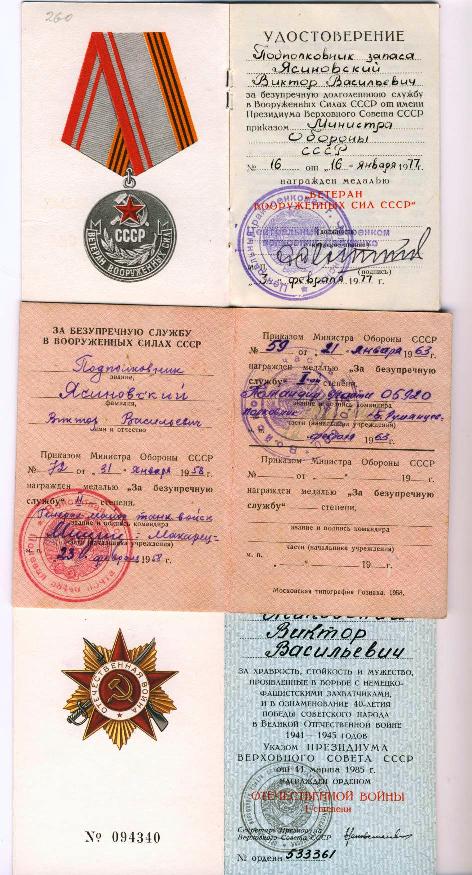 260
ВЕТЕРАН ВООРУЖЕННЫХ СИЛ
СССР
УДОСТОВЕРЕНИЕ
Подполковник запаса
Ясиновский
Виктор Васильевич
за безупречную долголетнюю службу
в Вооруженных Силах СССР от имени
Президиума Верховного Совета СССР
приказом Министра
Обороны
СССР
№ 16 от „16“ января 1977 г.
награжден медалью
„ВЕТЕРАН
ВООРУЖЕННЫХ СИЛ СССР“
(подпись)
февраля 1977 г.
ЗА БЕЗУПРЕЧНУЮ СЛУЖБУ
В ВООРУЖЕННЫХ СИЛАХ СССР
Подполковник
звание,
Ясиновский
фамилия,
Виктор Васильевич
имя и отчество
Приказом Министра Обороны СССР
№ 72 от „31“ января 1958 г.
награжден медалью „За безупречную
службу“ II степени.
Генерал-майор танк войск
звание и подпись командира
части (начальника учреждения)
февраля 1958 г.
Приказом Министра Обороны СССР
№ 59 от „21“ января 1963 г.
награжден медалью „За безупречную
службу“ I степени.
Командир части 05920
звание и подпись командира
полковник
февраля 1963 г.
Приказом Министра Обороны СССР
№ от „ “ 19 г.
награжден медалью „За безупречную
службу“ степени.
звание и подпись командира
части (начальника учреждения)
м. п. „ “ 19 г.
Московская типография Гознака. 1958.
ОТЕЧЕСТВЕННАЯ ВОЙНА
№ 094340
Виктор
Васильевич
ЗА ХРАБРОСТЬ, СТОЙКОСТЬ И МУЖЕСТВО,
ПРОЯВЛЕННЫЕ В БОРЬБЕ С НЕМЕЦКО-
ФАШИСТСКИМИ ЗАХВАТЧИКАМИ,
И В ОЗНАМЕНОВАНИЕ 40-ЛЕТИЯ
ПОБЕДЫ СОВЕТСКОГО НАРОДА
В ВЕЛИКОЙ ОТЕЧЕСТВЕННОЙ ВОЙНЕ
1941—1945 ГОДОВ
Указом ПРЕЗИДИУМА
ВЕРХОВНОГО СОВЕТА СССР
от 11 марта 1985 г.
НАГРАЖДЕН ОРДЕНОМ
ОТЕЧЕСТВЕННОЙ ВОЙНЫ
степени
Секретарь Президиума
Верховного Совета СССР
№ ордена 533361